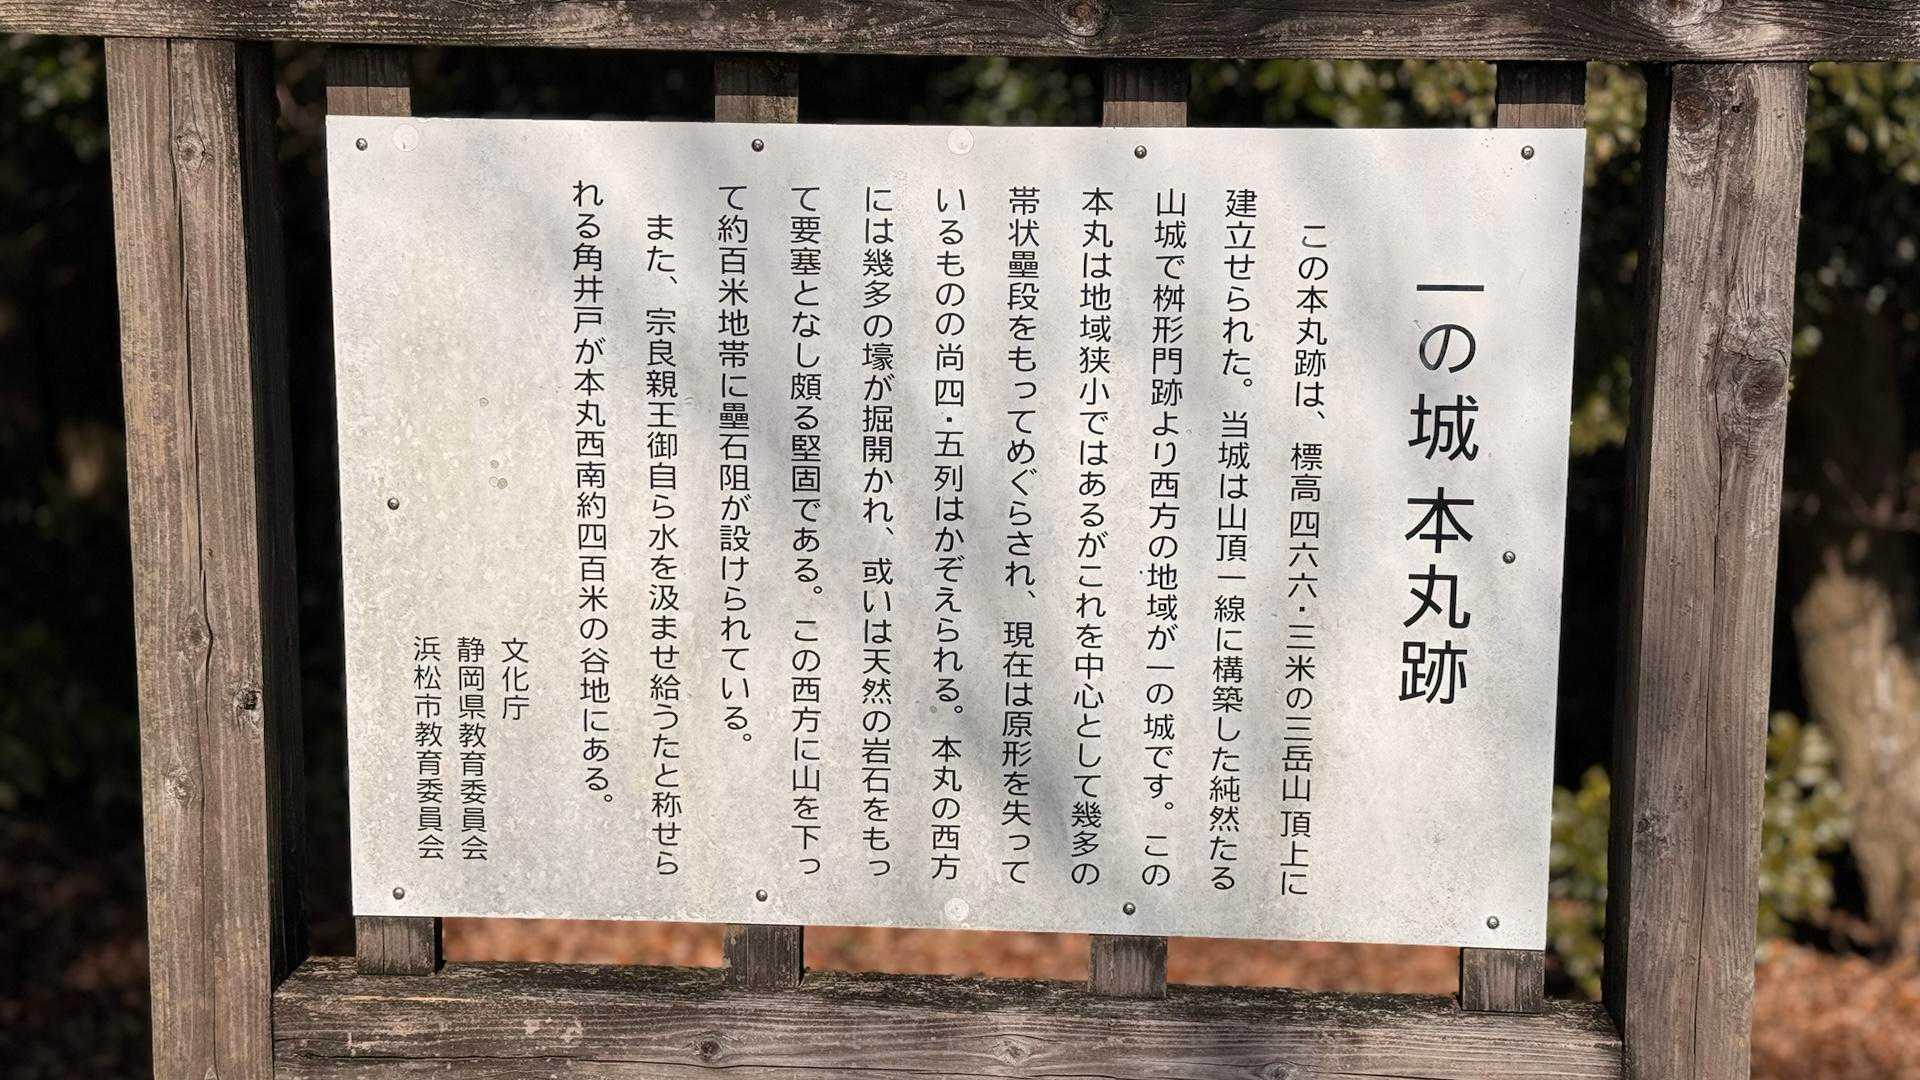 一の城 本丸跡
この本丸跡は、標高四六六・三米の三岳山頂上に
建立せられた。当城は山頂一線に構築した純然たる
山城で桝形門跡より西方の地域が一の城です。この
本丸は地域狭小ではあるがこれを中心として幾多の
帯状壘段をもってめぐらされ、現在は原形を失って
いるものの尚四・五列はかぞえられる。本丸の西方
には幾多の壕が掘開かれ、或いは天然の岩石をもっ
て要塞となし頗る堅固である。この西方に山を下っ
て約百米地帯に壘石阻が設けられている。
また、宗良親王御自ら水を汲ませ給うたと称せら
れる角井戸が本丸西南約四百米の谷地にある。
文化庁
静岡県教育委員会
浜松市教育委員会